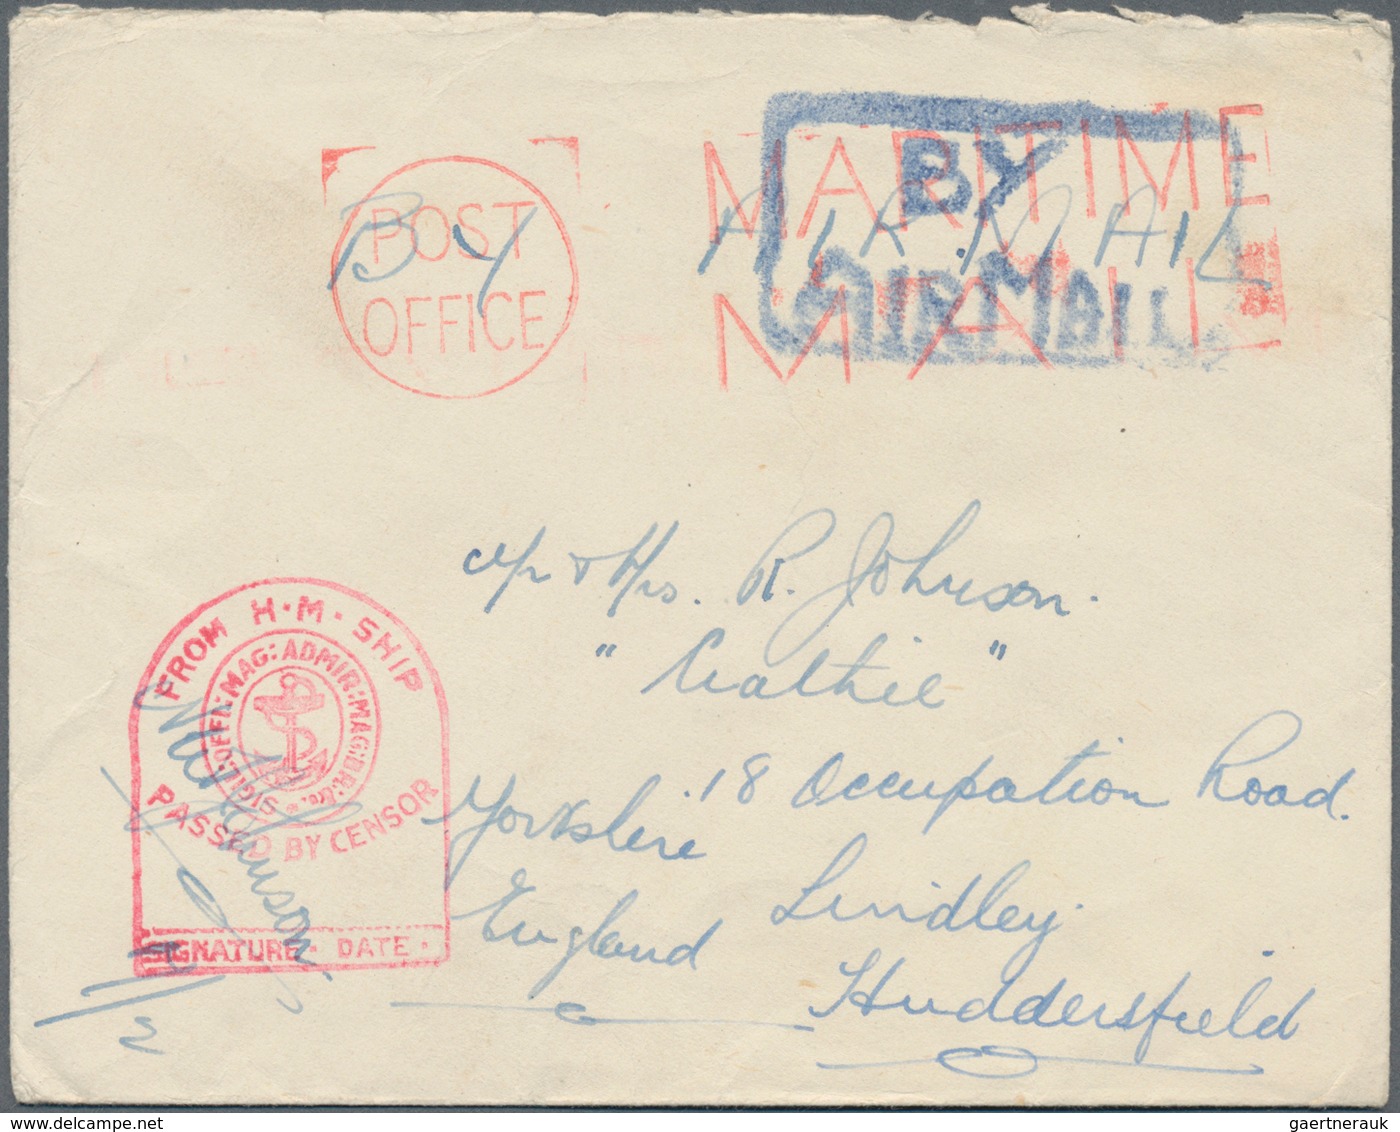 POST
OFFICE
MARITIME
MAIL
BY
AIR MAIL
By AIR MAIL
Mr & Mrs. R. Johnson.
"Crathie"
18 Occupation Road.
Lindley.
Huddersfield
Yorkshire
England
FROM H·M·SHIP
SIGIL:OFFI:MAG:ADMIR:MAG:BR:&c.
PASSED BY CENSOR
SIGNATURE· DATE·
gaertnerauk